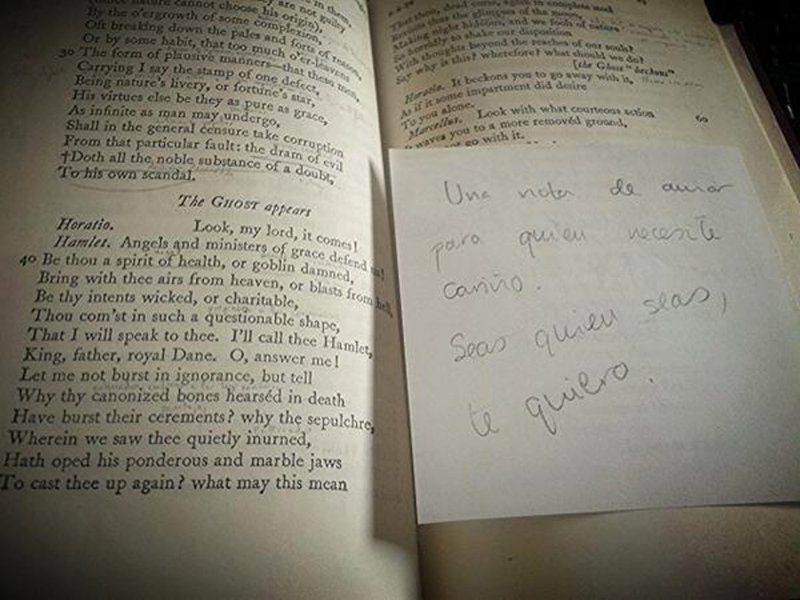 (since nature cannot choose his origin),
By the o'ergrowth of some complexion,
Oft breaking down the pales and forts of reason,
Or by some habit, that too much o'er-leavens
30 The form of plausive manners—that these men,
Carrying I say the stamp of one defect,
Being nature's livery, or fortune's star,
His virtues else be they as pure as grace,
As infinite as man may undergo,
Shall in the general censure take corruption
From that particular fault: the dram of evil
†Doth all the noble substance of a doubt,
To his own scandal.
The GHOST appears
Horatio. Look, my lord, it comes!
Hamlet. Angels and ministers of grace defend us!
40 Be thou a spirit of health, or goblin damned,
Bring with thee airs from heaven, or blasts from hell,
Be thy intents wicked, or charitable,
Thou com'st in such a questionable shape,
That I will speak to thee. I'll call thee Hamlet,
King, father, royal Dane. O, answer me!
Let me not burst in ignorance, but tell
Why thy canonized bones hearséd in death
Have burst their cerements? why the sepulchre,
Wherein we saw thee quietly inurned,
Hath oped his ponderous and marble jaws
To cast thee up again? what may this mean
That thou, dead corse, again in complete steel
Revisits thus the glimpses of the moon,
Making night hideous, and we fools of nature
So horridly to shake our disposition
With thoughts beyond the reaches of our souls?
Say why is this? wherefore? what should we do?
[the Ghost "beckons"
Horatio. It beckons you to go away with it,
As if it some impartment did desire
To you alone.
Marcellus. Look with what courteous action 60
It waves you to a more removéd ground,
go with it.
Una nota de amor
para quien necesite
cariño.
Seas quien seas,
te quiero.